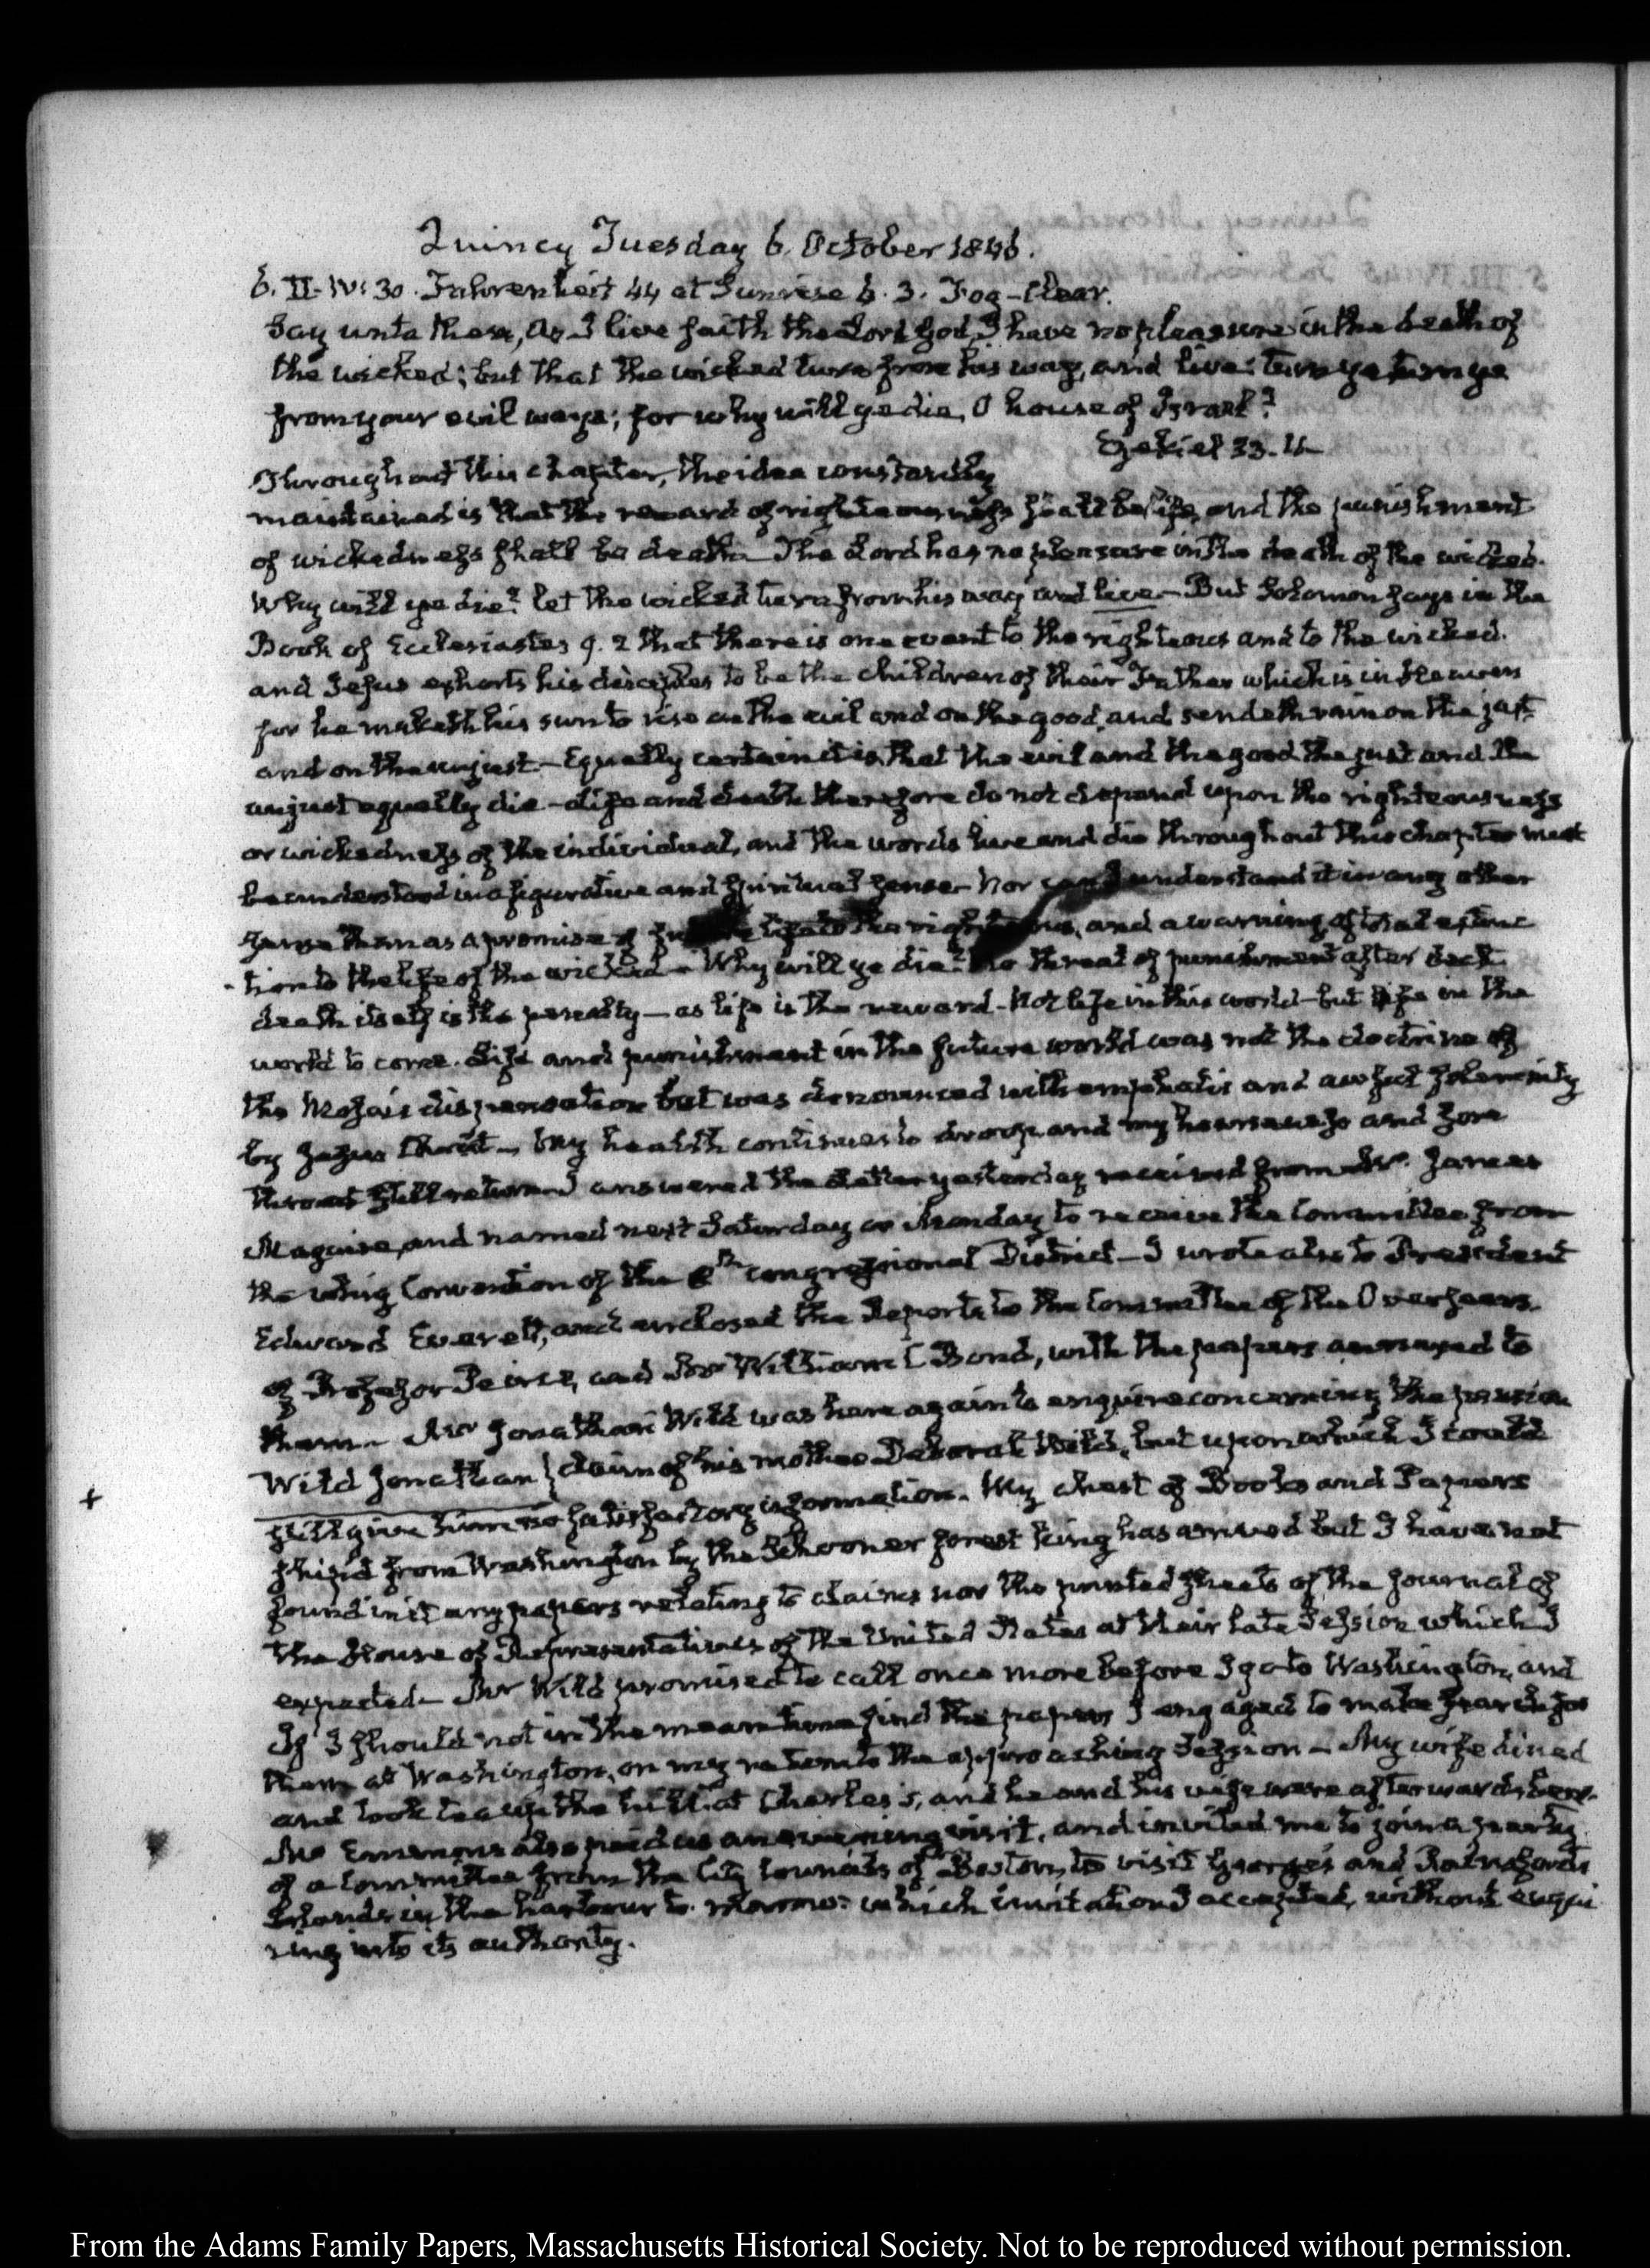 Quincy Tuesday 6. October 1846.
6. II. IV:30. Fahrenheit 44 at Sunrise 6. 3. Fog - Clear.
Say unto them, As I live saith the Lord God, I have no pleasure in the death of
the wicked; but that the wicked turn from his way, and live: turn ye turn ye
from your evil ways; for why will ye die, O house of Israel?
Ezekiel 33. 11
Throughout this chapter, the idea constantly
maintained is that the reward of righteousness shall be life, and the punishment
of wickedness shall be death. The Lord has no pleasure in the death of the wicked.
Why will ye die? let the wicked turn from his way and live - But Solomon says in the
Book of Ecclesiastes 9. 2 that there is one event to the righteous and to the wicked.
and Jesus exhorts his disciples to be the children of their Father which is in Heaven
for he maketh his sun to rise on the evil and on the good, and sendeth rain on the just
and on the unjust - Equally certain it is, that the evil and the good the just and the
unjust equally die - Life and death therefore do not depend upon the righteousness
or wickedness of the individual, and the words live and die throughout this chapter must
be understood in a figurative and spiritual sense - Nor can I understand it in any other
sense than as a promise of future life to the righteous, and a warning of total extinc
-tion to the life of the wicked - Why will ye die? No threat of punishment after death
death itself is the penalty - as life is the reward - Not life in this world - but life in the
world to come. Life and punishment in the future world was not the doctrine of
the Mosaic dispensation but was denounced with emphatic and awful solemnity
by Jesus Christ - My health continues to droop and my hoarseness and sore
throat still return. I answered the Letter yesterday received from Mr. James
Maguire, and named next Saturday or Monday to receive the Committee from
the whig Convention of the 8th. Congressional District - I wrote also to President
Edward Everett, and enclosed the Reports to the Committee of the Overseers
of Professor Peirce, and Mr William C Bond, with the papers annexed to
them - Mr Jonathan Wild was here again to enquire concerning the pension
Wild Jonathan } claim of his mother Deborah Wild, but upon which I could
+ still give him no satisfactory information. My chest of Books and Papers
ship'd from Washington by the Schooner Forest King has arrived but I have not
found in it any papers relating to claims nor the printed sheets of the Journal of
the House of Representatives of the United States at their late Session which I
expected - Mr Wild promised to call once more before I go to Washington, and
If I should not in the mean time find the papers I engaged to make search for
them at Washington, on my return to the approaching Session - My wife dined
and took tea up the hill at Charles's, and he and his wife were afterwards here.
Mr Emmons also paid us an evening visit, and invited me to join a party
of a Committee from the City Councils of Boston, to visit George's and Rainsford's
Islands in the harbour to-morrow: which invitation I accepted, without enqui
ring into its authority.
From the Adams Family Papers, Massachusetts Historical Society. Not to be reproduced without permission.